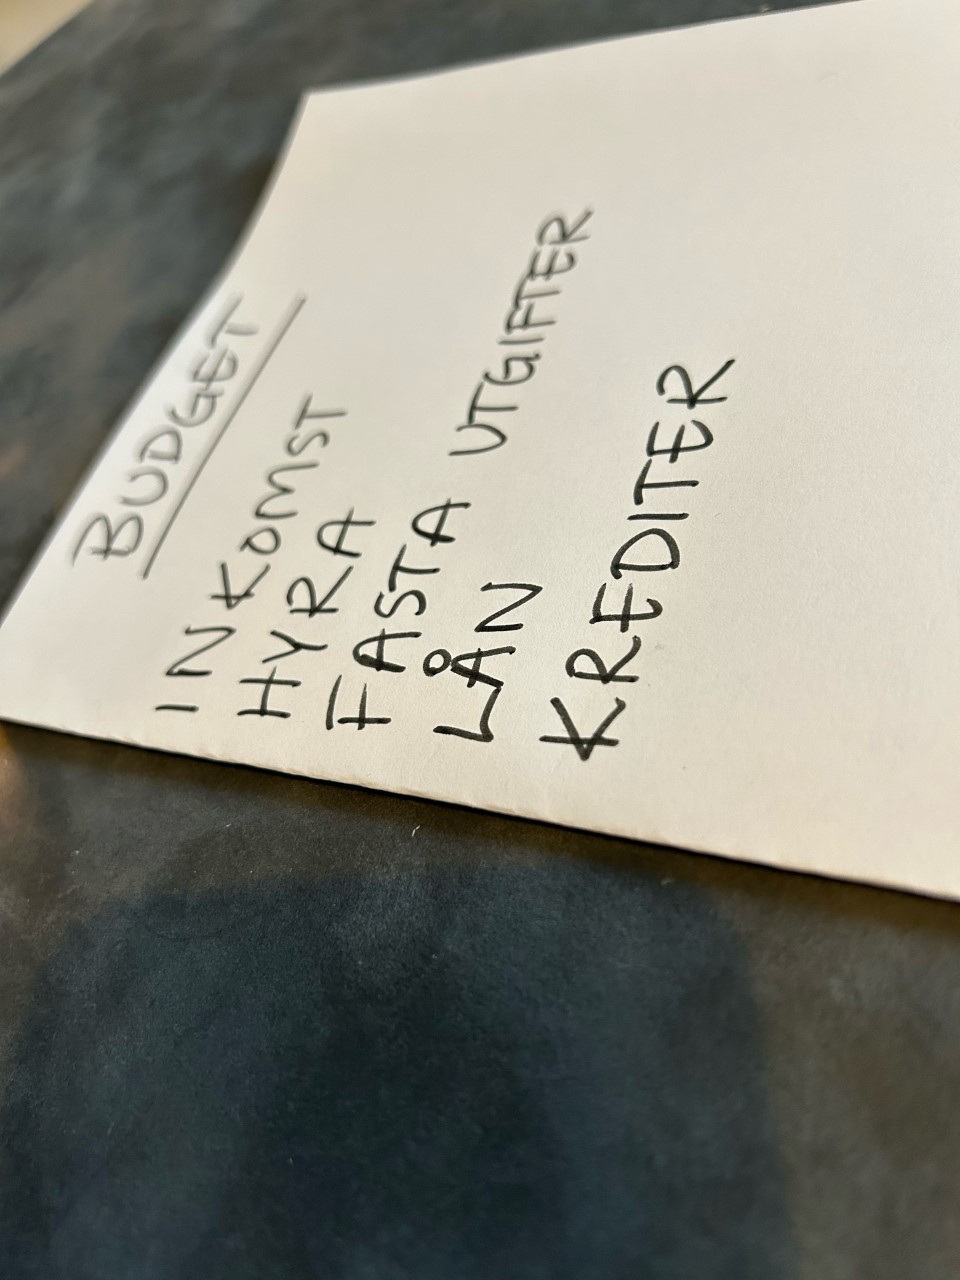 BUDGET
INKOMST
HYRA
FASTA UTGIFTER
LÅN
KREDITER